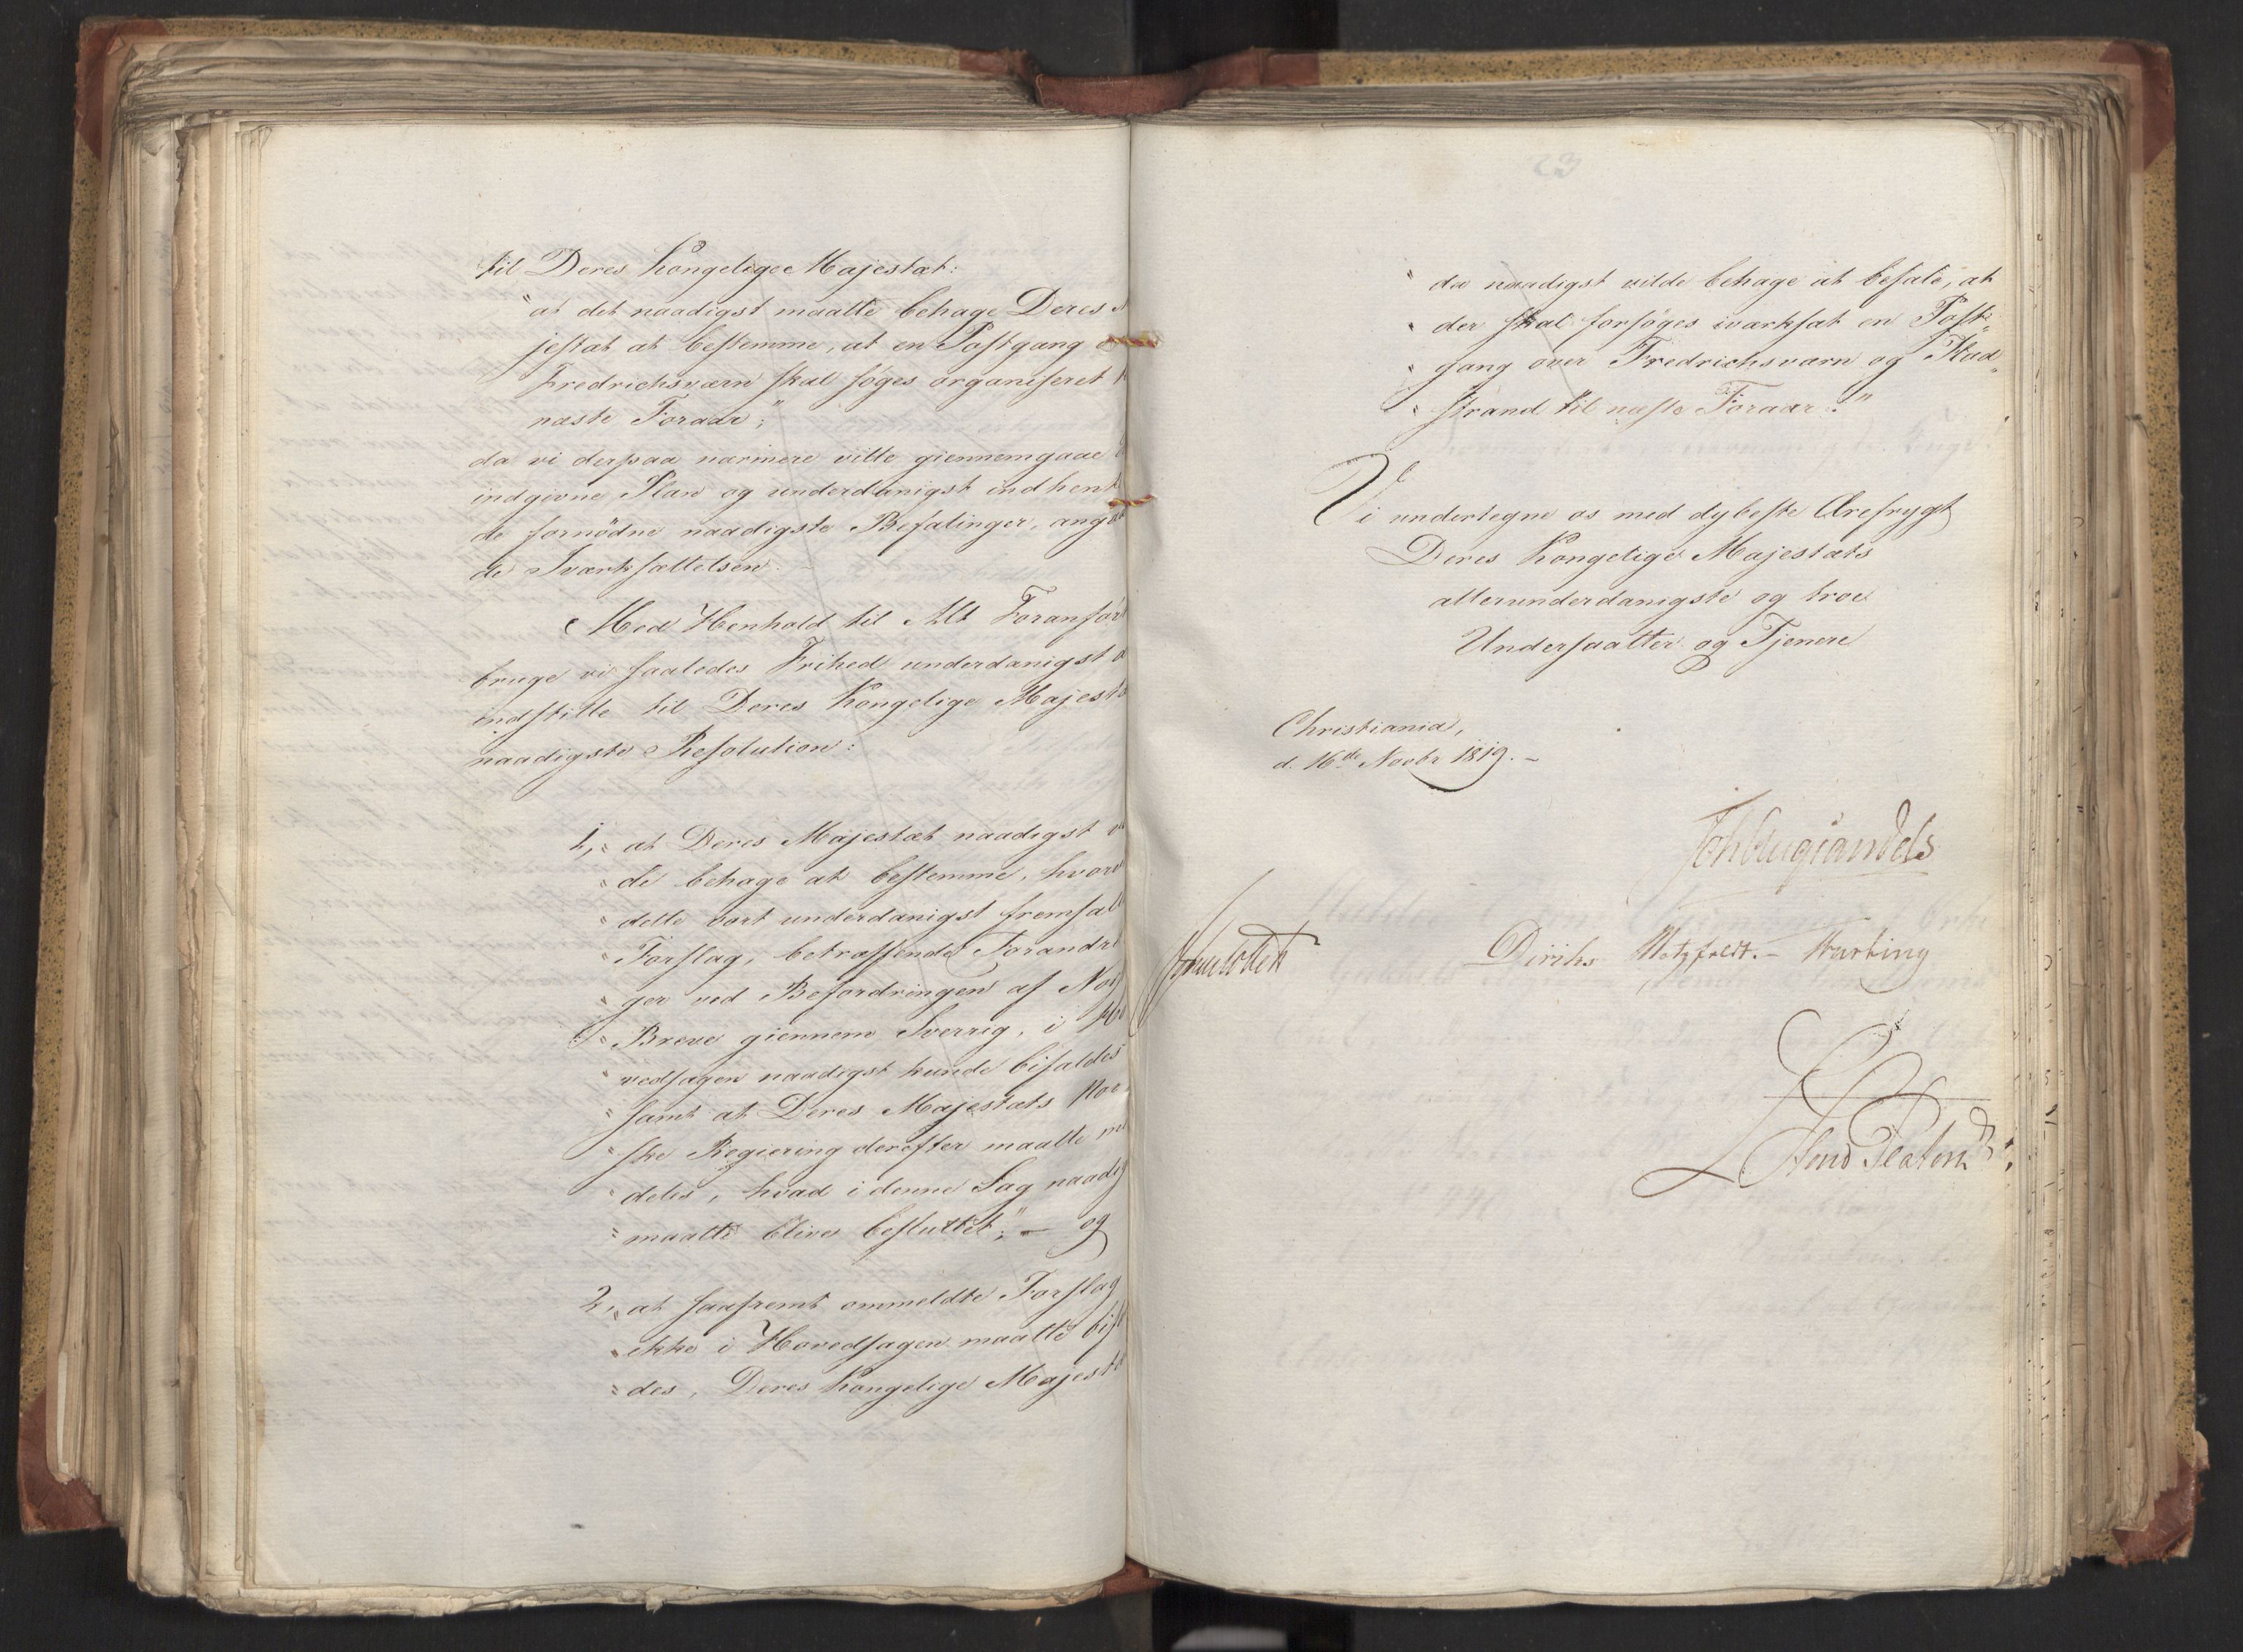 til Deres Kongelige Majestæt:
"at det naadigst maatte behage Deres
jestæt at bestemme, at en Postgang
Fredrichsværn skal søges organiseret
næste Foraar;"
da vi derpaa nærmere ville giennemgaae
indgivne Plan og underdanigst indhent
de fornødne naadigste Befalinger, angaa
de Iværksættelsen.
Med Henhold til Alt Foranfør
bruge vi saaledes Frihed underdanigst
indstille til Deres Kongelige Majestæ
naadigste Resolution:
1, " at Deres Majestæt naadigst
" de behage at bestemme, hvor
" dette vort underdanigst fremsat
" Forslag, betræffende Forandri
" ger ved Befordringen af
" Breve giennem Sverrig, i
" vedsagen naadigst kunde bifaldes
" samt at Deres Majestæts Nor
" ske Regiering derefter maatte
" deles, hvad i denne Sag naadig
" maatte blive besluttet;" — og
2, " at saafremt ommeldte Forslag
" ikke i Hovedsagen maatte bif
" des, Deres Kongelige Majestæ
" da naadigst vilde behage at befale, at
" der skal forsøges iværksat en Post-
" gang over Fredrichsværn og Flad-
" strand til næste Foraar."
Vi undertegne os med dybeste Ærefrygt
Deres Kongelige Majestæts
allerunderdanigste og troe
Undersaatter og Tjenere
Christiania,
d. 16de Novbr 1819. –
Diriks Motzfeldt. – Krebting